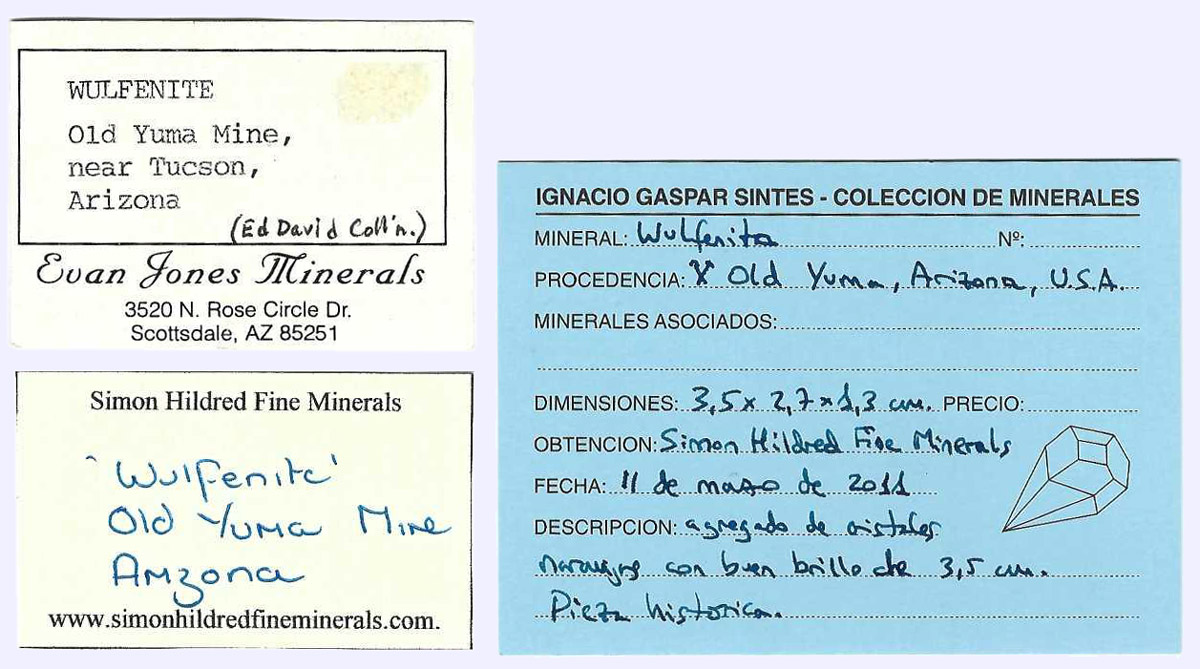 WULFENITE
Old Yuma Mine,
near Tucson,
Arizona
(Ed David Coll'n.)
Evan Jones Minerals
3520 N. Rose Circle Dr.
Scottsdale, AZ 85251
Simon Hildred Fine Minerals
'Wulfenite'
Old Yuma Mine
Arizona
www.simonhildredfineminerals.com.
IGNACIO GASPAR SINTES - COLECCION DE MINERALES
MINERAL: Wulfenita Nº:
PROCEDENCIA: Old Yuma, Arizona, U.S.A.
MINERALES ASOCIADOS:
DIMENSIONES: 3,5 x 2,7 x 1,3 cm. PRECIO:
OBTENCION: Simon Hildred Fine Minerals
FECHA: 11 de marzo de 2011
DESCRIPCION: agregado de cristales
naranjas con buen brillo de 3,5 cm.
Pieza historica.